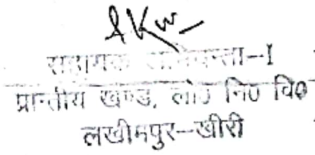 सहायक अभियन्ता-I
प्रान्तीय खण्ड, लो० नि० वि०
लखीमपुर-खीरी